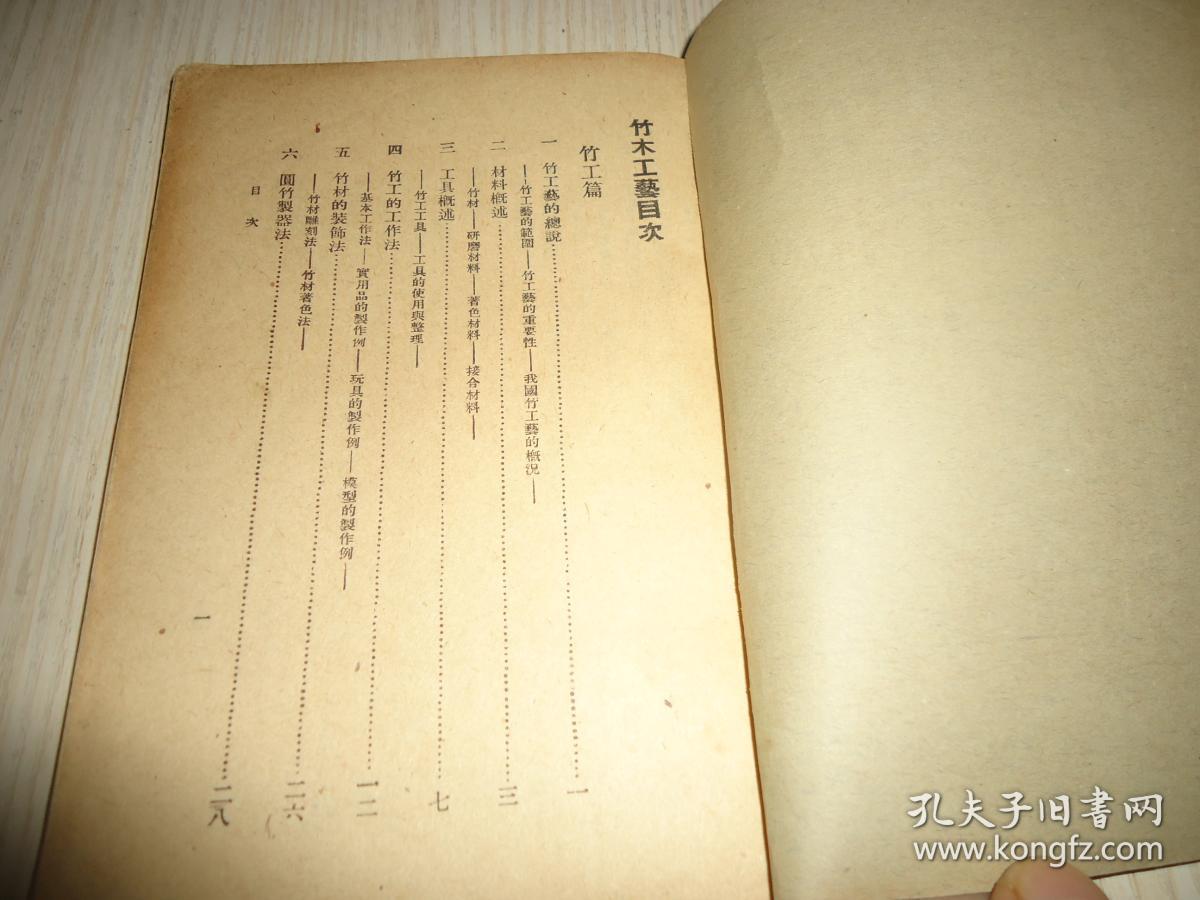 竹木工藝目次
竹工篇
一 竹工藝的總說……一
——竹工藝的範圍——竹工藝的重要性——我國竹工藝的概況——
二 材料概述……三
——竹材——研磨材料——著色材料——接合材料——
三 工具概述……七
——竹工工具——工具的使用與整理——
四 竹工的工作法……一二
——基本工作法——實用品的製作例——玩具的製作例——模型的製作例——
五 竹材的裝飾法……二六
——竹材雕刻法——竹材著色法——
六 圓竹製器法……二八
目次
一
孔夫子旧书网
www.kongfz.com